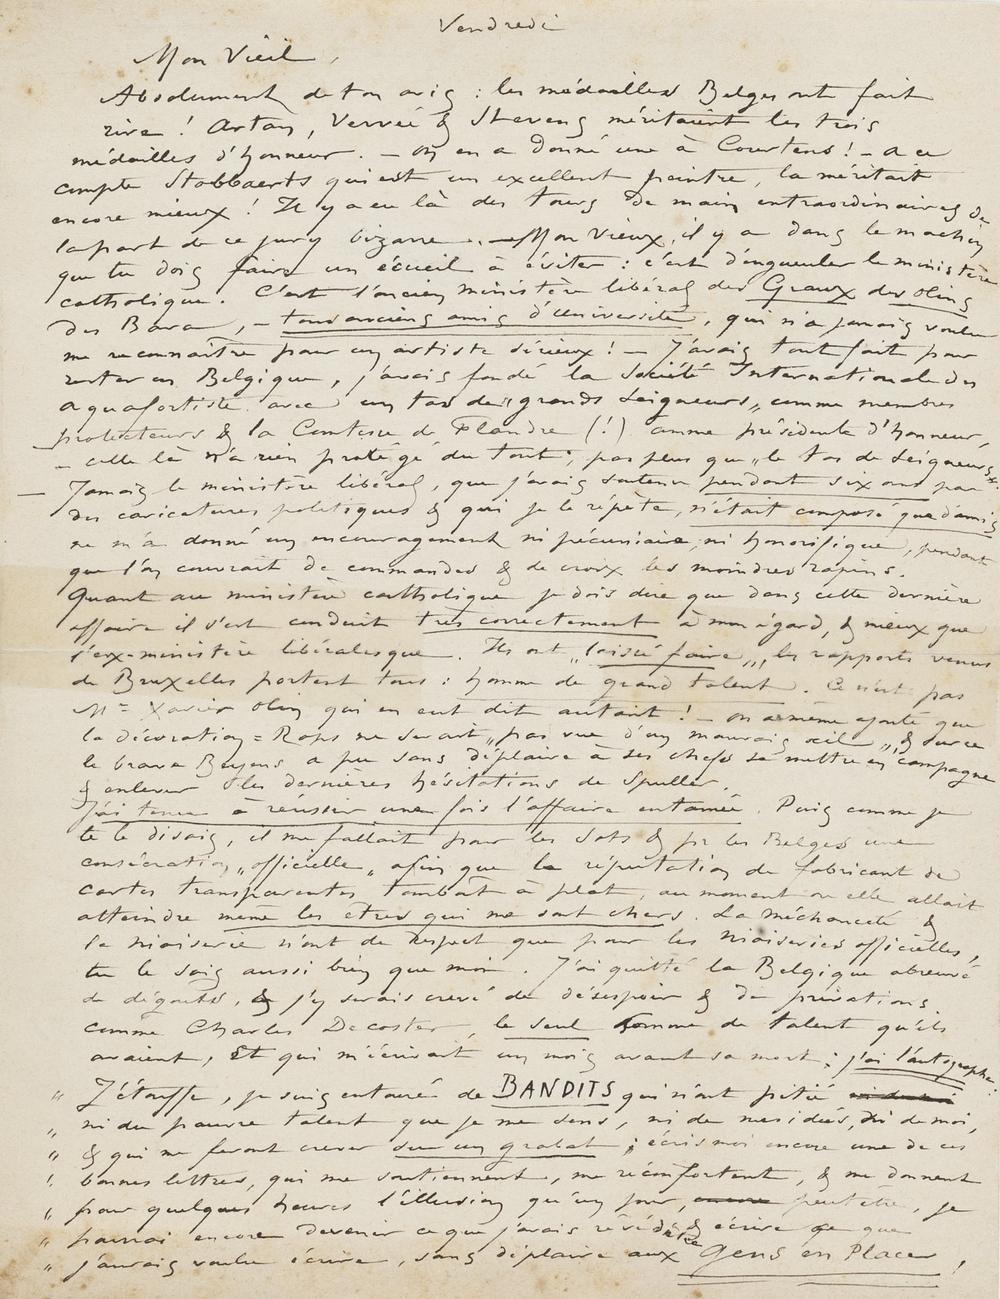 Vendredi
Mon Vieil,
Absolument de ton avis : les médailles Belges ont fait
rire ! Artan, Verwée & Stevens méritaient les trois
médailles d'honneur. – on en a donné une à Courtens ! – a ce
compte Stobbaerts qui est un excellent peintre, la méritait
encore mieux ! Il y a eu là des tours de main extraordinaires de
la part de ce jury bizarre. – Mon vieux, il y a dans le machin
que tu dois faire un écueil à éviter : c'est d'engueuler le ministère
catholique. C'est l'ancien ministère libéral des Graux des Olins
des Bara, – tous anciens amis d'Université, qui n'a jamais voulu
me reconnaître pour un artiste sérieux ! – J'avais tout fait pour
rester en Belgique, j'avais fondé la Société Internationale des
aquafortistes avec un tas de „grands Seigneurs„ comme membres
protecteurs & la Comtesse de Flandre (!) comme présidente d'honneur,
– celle là n'a rien protégé du tout ; pas plus que „le tas de Seigneurs„
– Jamais le ministère libéral, que j'avais soutenu pendant six ans par
des caricatures politiques & qui je le répète, n'était composé que d'amis
ne m'a donné un encouragement ni pécuniaire, ni honorifique, pendant
que l'on couvrait de commandes & de croix les moindres rapins.
Quant au ministère catholique je dois dire que dans cette dernière
affaire il s'est conduit très correctement à mon égard, & mieux que
l'ex-ministère libéralesque. Ils ont „laissé faire„, les rapports venus
de Bruxelles portent tous : homme de grand talent. Ce n'est pas
Mr Xavier Olin qui en eut dit autant ! – on a même ajouté que
la décoration = Rops ne serait „pas vue d'un mauvais œil„, & sur ce
le brave Beyens a pu sans déplaire à ses chefs se mettre en campagne
& enlever les dernières hésitations de Spuller.
J'ai tenu à réussir une fois l'affaire entamée. Puis comme je
te le disais, il me fallait pour les sots & pr les Belges une
consécration „officielle„ afin que la réputation de fabricant de
cartes transparentes tombât à plat, au moment ou elle allait
atteindre même les êtres qui me sont chers. La méchanceté &
la niaiserie n'ont de respect que pour les niaiseries officielles,
tu le sais aussi bien que moi. J'ai quitté la Belgique abreuvé
de dégoûts, & j'y serais crevé de désespoir & de privations
comme Charles Decoster, le seul homme de talent qu'ils
avaient, Et qui m'écrivait un mois avant sa mort : j'ai l'autographe :
„ J'étouffe, je suis entouré de BANDITS qui n'ont pitié
„ ni du pauvre talent que je me sens, ni de mes idées, ni de moi,
„ & qui me feront crever sur un grabat ; écris moi encore une de ces
„ bonnes lettres, qui me soutiennent, me réconfortent, & me donnent
„ pour quelques heures l'illusion qu'un jour, peut être, je
„ pourrai encore devenir ce que j'avais rêvé d'être & écrire ce que
„ j'aurais voulu écrire, sans déplaire aux Gens en Place„ !